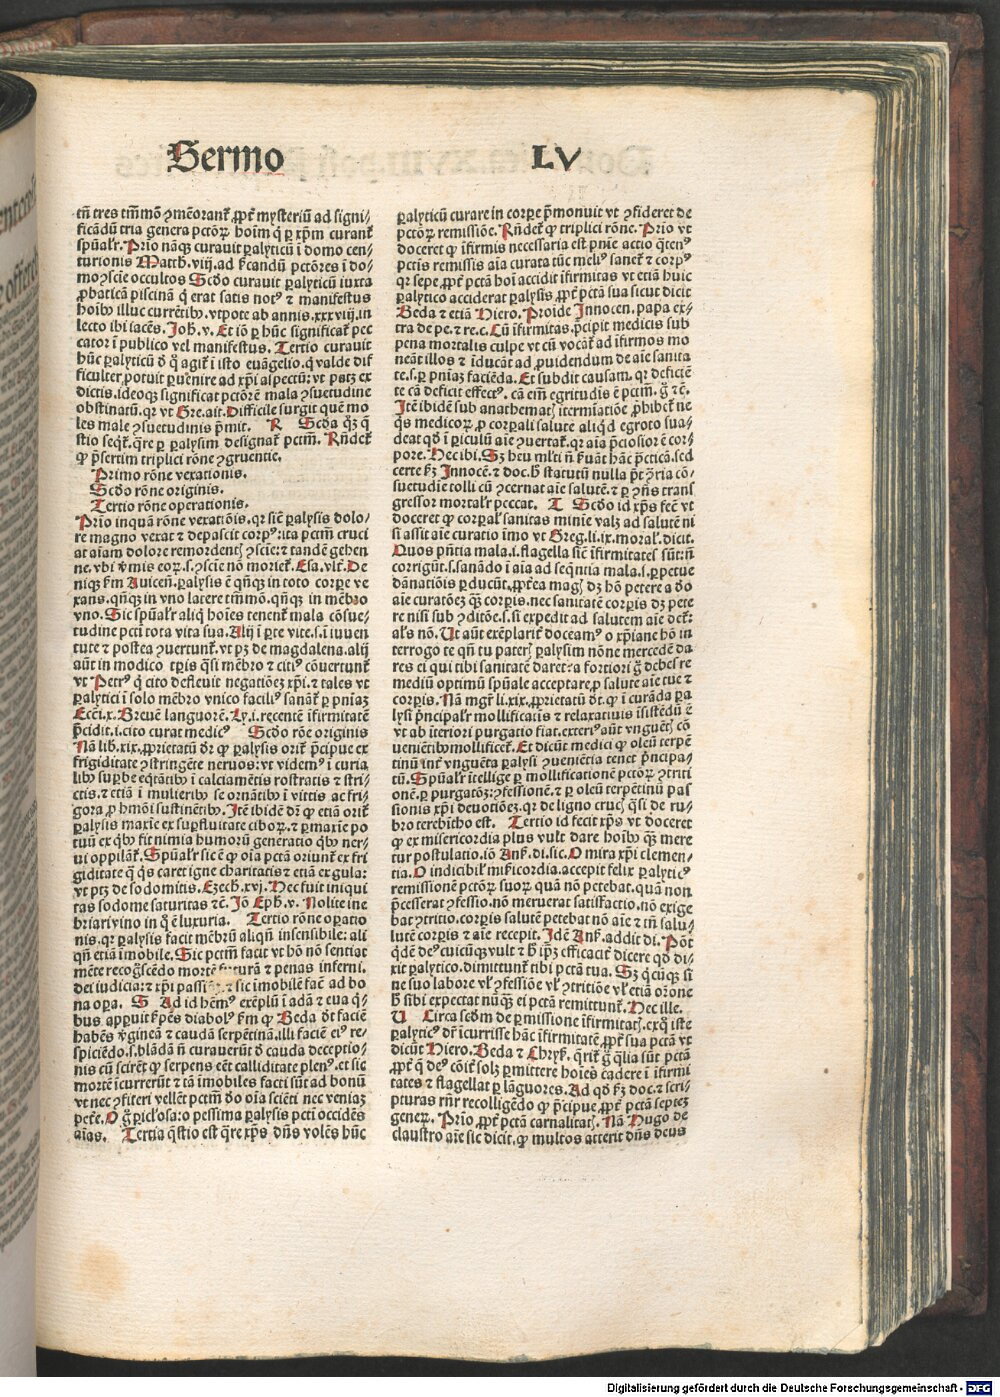 Sermo LV
tñ tres tm̃mõ ꝯmẽorant᷒ ꝓpt᷒ mysteriũ ad signi⸗
ficãdũ tria genera pctõꝝ hoim̃ q̃ ꝑ xp̃m curant᷒
spũalr᷒. Prio nãqꝫ curauit ꝑalyticũ ĩ domo cen⸗
turionis Matth. viij. ad s̃candũ pctõres ĩ do⸗
mo ꝯscie occultos Scdo curauit ꝑalyticũ iuxta
ꝓbaticã piscinã q̃ erat satis notꝰ ⁊ manifestus
hoibꝫ illuc currẽtibꝫ. vtpote ab annis. xxxviij. in
lecto ibi iacẽs. Joh. v. Et iõ ꝑ hũc significat᷒ pec
cator ĩ publico vel manifestus. Tertio curauit
hũc ꝑalyticũ d̃ q̃ agit᷒ ĩ isto euãgelio. q̃ valde dif
ficulter potuit ꝑuenire ad xp̃i aspectũ: vt patꝫ ex
dictis. ideoqꝫ significat pctõrẽ mala ꝯsuetudine
obstinatũ. qꝛ vt Gre. ait. Difficile surgit quẽ mo
les male ꝯsuetudinis p̃mit. R Scda qꝫ q̃
stio seqt᷒. q̃re ꝑ ꝑalysim designat᷒ pctm̃. Rñdet᷒
ꝙ p̃sertim triplici rõne ꝯgruentie.
Primo rõne vexationis.
Scdo rõne originis.
Tertio rõne operationis.
Prio inquã rõne vexatiõis. qꝛ sic̃ ꝑalysis dolo⸗
re magno vexat ⁊ depascit corpꝰ: ita pctm̃ cruci
at aiam dolore remordentꝭ ꝯscie: ⁊ tandẽ gehen
ne. vbi v̾mis eoꝝ. s. ꝯscie nõ moriet᷒. Esa. vlt᷒. De
niqꝫ s̃m Auicen̄. ꝑalysis ẽ qñqꝫ in toto corpe ve
xans. qñqꝫ in vno latere tm̃mõ. qñqꝫ in mẽbro
vno. Sic spũalr᷒ aliq̃ hoies tenent᷒ mala cõsue⸗
tudine pcti tota vita sua. Alij ĩ ꝑte vite. s. ĩ iuuen
tute ⁊ postea ꝯuertunt᷒. vt pꝫ de magdalena. alij
aũt in modico tp̃is q̃si mẽbro ⁊ citiꝰ cõuertunt᷒
vt Petrꝰ q̃ cito defleuit negatiõeꝫ xp̃i. ⁊ tales vt
ꝑalytici ĩ solo mẽbro vnico faciliꝰ sanãt᷒ ꝑ pniaꝫ
Ecc̃i. x. Breuẽ languorẽ. Ly. i. recentẽ ĩfirmitatẽ
p̃cidit. i. cito curat medicꝰ Scdo rõne originis
Nã lib. xix. ꝓprietatũ d̃r ꝙ ꝑalysis orit᷒ p̃cipue ex
frigiditate ꝯstringẽte neruos: vt videmꝰ ĩ curia
libꝫ supbe eqtãtibꝫ ĩ calciamẽtis rostratis ⁊ stri⸗
ctis. ⁊ etiã ĩ mulieribꝫ se ornãtibꝫ ĩ vittis ac fri⸗
gora ꝓ hmõi sustinẽtibꝫ. Itẽ ibidẽ dr̃ ꝙ etiã orit᷒
ꝑalysis maxie ex supfluitate ciboꝝ. ⁊ ꝑmaxie po
tuũ ex qbꝫ fit nimia humorũ generatio qbꝫ ner⸗
ui oppilãt᷒. Spũalr᷒ sic ẽ ꝙ oia pctã oriunt᷒ ex fri
giditate q̃ q̃s caret igne charitatis ⁊ etiã ex gula:
vt ptꝫ de sodomitis. Ezech. xvj. Hec fuit iniqui
tas sodome saturitas ⁊c̃. Jõ Eph. v. Nolite ine
briari vino in q̃ ẽ luxuria. Tertio rõne opatio
nis. qꝛ ꝑalysis facit mẽbrũ aliqñ insensibile: ali
qñ etiã imobile. Sic pctm̃ facit vt hõ nõ sentiat
mẽte recogscẽdo mortẽ futurã ⁊ penas inferni.
dei iudicia: ⁊ xp̃i passi ⁊ sic imobilẽ facẽ ad bo
na opa. S Ad id hemꝰ exẽplũ ĩ adã ⁊ eua q̃⸗
bus appuit s̃pẽs diabolꝰ s̃m ꝙ Beda dt faciẽ
habẽs v̾gineã ⁊ caudã serpẽtinã. illi faciẽ eiꝰ re⸗
spiciẽdo. s. blãdã ñ curauerũt d̃ cauda deceptio⸗
nis cũ scirẽt ꝙ serpens eẽt calliditate plenꝰ. et sic
mortẽ icurrerũt ⁊ tã ĩmobiles facti sũt ad bonũ
vt nec ꝯfiteri vellẽt pctm̃ d̃o oia sciẽti nec veniaꝫ
pet̾e. O g̃ piclosa: o pessima ꝑalysis pcti occidẽs
aias. Tertia q̃stio est q̃re xp̃s dñs volẽs hũc
ꝑalyticũ curare in corpe p̃monuit vt ꝯfideret de
pctõꝝ remissiõe. Rñdet᷒ ꝙ triplici rõne. Prio vt
doceret ꝙ ĩfirmis necessaria est pnie actio q̃tenꝰ
pctis remissis aia curata tũc meliꝰ sanet᷒ ⁊ corpꝰ
qꝛ sepe. ꝓpt᷒ pctã hoi accidit ĩfirmitas vt etiã huic
ꝑalytico acciderat ꝑalysis. ꝓpt᷒ pctã sua sicut dicit
Beda ⁊ etiã Hiero. Proide Innocen. papa ex⸗
tra de pe. ⁊ re. c. Cũ ĩfirmitas. p̃cipit medicis sub
pena mortalis culpe vt cũ vocãt᷒ ad ĩfirmos mo
neãt illos ⁊ ĩducãt ad ꝓuidendum de aie sanita
te. s. ꝑ pniaꝫ faciẽdã. Et subdit causam. qꝛ deficiẽ
te cã deficit effectꝰ. cã eĩm egritudis ẽ pctm̃. g̃ ⁊c̃.
Itẽ ibidẽ sub anathematꝭ iterm̃iatiõe ꝓhibet᷒ ne
q̃s medicoꝝ ꝓ corpali salute aliq̃d egroto sua⸗
deat qd̃ ĩ piculũ aie ꝯuertat᷒. qꝛ aia p̃ciosior ẽ cor⸗
pore. Hec ibi. Sꝫ heu ml̃ti ñ s̃uãt hãc p̃cticã. sed
certe s̃ꝫ Innocẽ. ⁊ doc. hͦ statutũ nulla p̃t ꝯ̃ria cõ⸗
suetudie tolli cũ ꝯcernat aie salutẽ. ⁊ ꝑ ꝯñs trans
gressor mortalr᷒ peccat. T Scdo id xp̃s fec̃ vt
doceret ꝙ corpal᷒ sanitas minie valꝫ ad salutẽ ni
si assit aie curatio imo vt Greg. li. ix. moral᷒. dicit.
Quos pñtia mala. i. flagella sic̃ ĩfirmitates sũt: ñ
corrigũt. s. sanãdo ĩ aia ad seq̃ntia mala. s. ꝑpetue
dãnatiõis ꝑducũt. ꝓpt̾ea magꝭ dꝫ hõ petere a d̃o
aie curatõeꝫ q̃ꝫ corpis. nec sanitatẽ corpis dꝫ pete
re nisi sub ꝯditõe. s. si expedit ad salutem aie dec̾:
al̾s nõ. Ut aũt exẽplarit᷒ doceamꝰ o xp̃iane hõ in
terrogo te qñ tu pateris ꝑalysim nõne mercedẽ da
res ci qui tibi sanitatẽ daret: a fortiori g̃ debes re
mediũ optimũ spũale acceptare. ꝓ salute aie tue ⁊
corpis. Nã mgr᷒ li. xix. ꝓprietatũ d̃t. ꝙ ĩ curãda ꝑa
lysi p̃ncipalr᷒ mollificatiũs ⁊ relaxatiuis ĩsistẽdũ ẽ
vt ab iteriori purgatio fiat. exteriꝰ aũt vnguẽtꝭ cõ
ueniẽtibꝫ mollificet᷒. Et dicũt medici ꝙ oleũ terpẽ
tinũ int̾ vnguẽta ꝑalysi ꝯueniẽtia tenet p̃ncipa⸗
tũ. Spũalr᷒ itellige ꝑ mollificationẽ pctõꝝ ꝯtriti
onẽ. ꝑ purgatõꝫ: ꝯfessionẽ. ⁊ ꝑ oleũ terpẽtinũ pas
sionis xp̃i deuotiõeꝫ. qꝛ de ligno crucꝭ q̃si de ru⸗
bro terebĩtho est. Tertio id fecit xp̃s vt doceret
ꝙ ex misericordia plus vult dare hoibꝫ q̃ꝫ mere
tur postulatio. iõ Ans̃. di. sic. O mira xp̃i clemen⸗
tia. O indicibil᷒ mis̃icordia. accepit felix ꝑalyticꝰ
remissionẽ pctõꝝ suoꝝ quã nõ petebat. quã non
p̃cesserat ꝯfessio. nõ meruerat satisfactio. nõ exige
bat ꝯtritio. corpis salutẽ petebat nõ aie ⁊ tñ salu⸗
lutẽ corpis ⁊ aie recepit. Idẽ Ans̃. addit di. Põt
q̃dẽ deꝰ cuicũqꝫ vult ⁊ hͦ ip̃ꝫ efficacit᷒ dicere qd̃ di⸗
xit ꝑalytico. dimittunt᷒ tibi pctã tua. Sꝫ q̃cũqꝫ si
ne suo labore vl̾ ꝯfessiõe vl̾ ꝯtritiõe vl̾ etiã orõne
hͦ sibi expectat nũqꝫ ei pctã remittunt᷒. Hec ille.
U Circa scdm̃ de ꝑmissione ĩfirmitatꝭ. ex q̃ iste
ꝑalyticꝰ d̃r icurrisse hãc ĩfirmitatẽ. ꝓpt᷒ sua pctã vt
dicũt Hiero. Beda ⁊ Chrys̃. q̃rit᷒ g̃ q̃lia sũt pctã
ꝓpt᷒ q̃ deꝰ cõit᷒ solꝫ ꝑmittere hoies cadere ĩ ĩfirmi
tates ⁊ flagellat ꝑ lãguores. Ad qd̃ s̃ꝫ doc. ⁊ scri⸗
pturas rñr᷒ recolligẽdo ꝙ p̃cipue. ꝓpt᷒ pctã septeꝫ
geneꝝ. Prio. ꝓpt᷒ pctã carnalitatꝭ. Nã Hugo de
claustro aie sic dicit. ꝙ multos atterit dñs deus
Digitalisierung gefördert durch die Deutsche Forschungsgemeinschaft - DFG